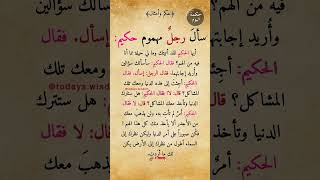 حكمة اليوم
﴿حكم وأمثال﴾
سأل رجلٌ مهموم حكيم:
أيها الحكيم لقد أتيتك وما لي حيلة مما أنا
فيه من الهم؟ فقال الحكيم: سأسألك سؤالين
وأُريد إجابتهما. فقال الرجل: إسأل. فقال
الحكيم: أجئت إلى هذه الدنيا ومعك تلك
@todays.wisd
المشاكل؟ قال: لا فقال الحكيم: هل ستترك
الدنيا وتأخذ معك المشاكل؟ قال: لا فقال
الحكيم: أمرٌ لم تأتِ به، ولن يذهب معك
من الأجدر ألا يأخذ منك كل هذا الهم!
فكن صبوراً على أمر الدنيا وليكن نظرك إلى
السماء أطول من نظرك إلى الأرض يكن
لك ما أردت.